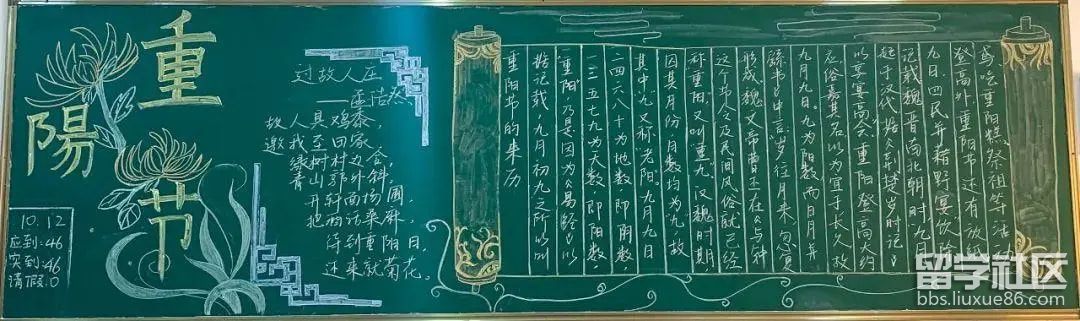 重陽节
10.12
应到:46
实到:46
请假:0
过故人庄
——孟浩然
故人具鸡黍,
邀我至田家。
绿树村边合,
青山郭外斜。
开轩面场圃,
把酒话桑麻。
待到重阳日,
还来就菊花。
重阳节的来历
据记载,九月初九之所以叫
“重阳”,乃是因为《易经》以
一三五七九为天数,即阳数,
二四六八十为地数,即阴数。
其中,九又称“老阳”。九月九日
因其月份、日数均为“九”,故
称重阳,又叫“重九”。汉魏时期,
这个节令及民间风俗就已经
形成。魏文帝曹丕在《与钟
繇书》中言“岁往月来,忽复
九月九日。九为阳数,而日月并
应,俗嘉其名,以为宜于长久,故
以宴高会”。重阳登高大约
起于汉代,据《荆楚岁时记》
记载,魏晋南北朝时“九月
九日,四民并藉野宴饮”,除
登高外,重阳节还有放纸
鸢、吃重阳糕、祭祖等活动
留学社区
bbs.liuxue86.com